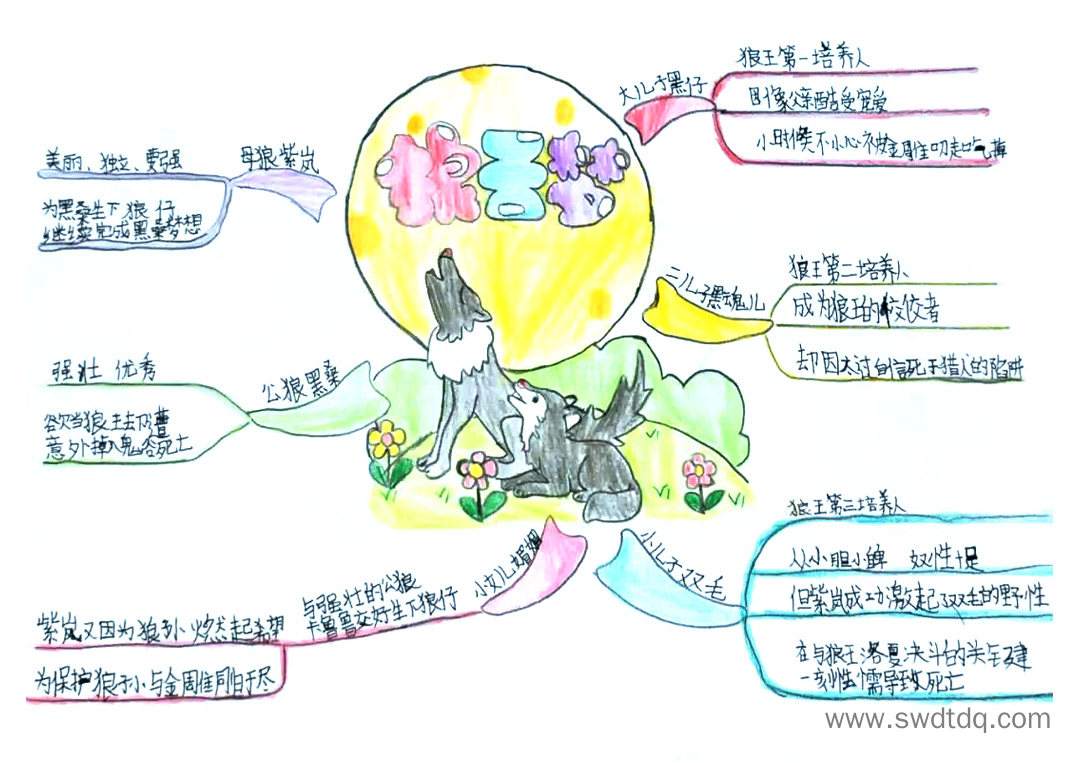 狼王梦
母狼紫岚
美丽、独立、要强
为黑桑生下狼仔
继续完成黑桑梦想
公狼黑桑
强壮 优秀
欲当狼王却遭
意外掉入鬼谷死亡
大儿子黑仔
狼王第一培养人
因像父亲酷受宠爱
小时候不小心被金雕叼走吃掉
二儿子黑魂儿
狼王第二培养人
成为狼王的佼佼者
却因太过自信死于猎人的陷阱
小儿子双毛
狼王第三培养人
从小胆小 奴性十足
但紫岚成功激起双毛的野性
在与狼王洛夏决斗的关键
一刻性懦导致死亡
小女儿媚媚
与强壮的公狼
卡鲁鲁交好生下狼仔
紫岚又因为狼孙 燃起希望
为保护狼孙与金雕同归于尽
www.swdtdq.com